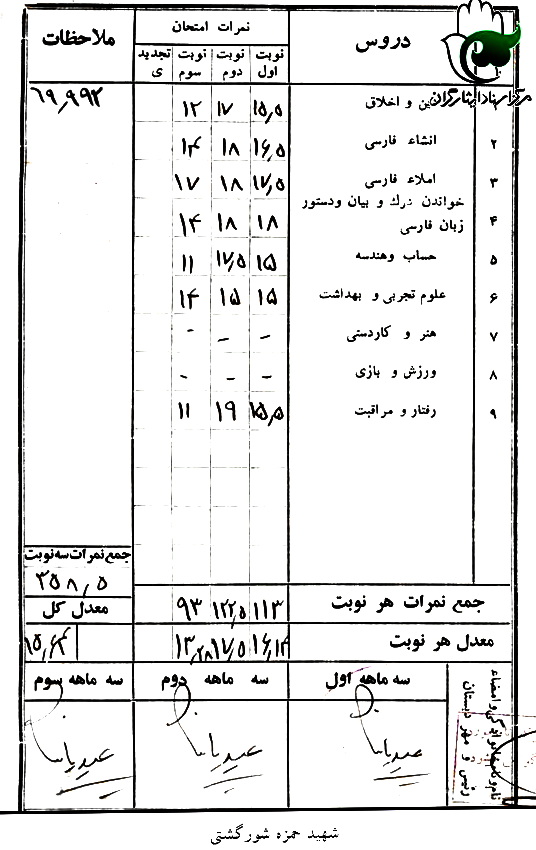 دروس
نمرات امتحان
ملاحظات
نوبت اول
نوبت دوم
نوبت سوم
تجدیدی
مرکز اسناد ایثارگران
۱ دین و اخلاق ۱۵٫۵ ۱۷ ۱۲
۶۹٫۹۹۲
۲ انشاء فارسی ۱۶٫۵ ۱۸ ۱۴
۳ املاء فارسی ۱۷٫۵ ۱۸ ۱۷
خواندن درك و بیان ودستور
۴ زبان فارسی ۱۸ ۱۸ ۱۴
۵ حساب وهندسه ۱۵ ۱۷٫۵ ۱۱
۶ علوم تجربی و بهداشت ۱۵ ۱۵ ۱۴
۷ هنر و کاردستی - - -
۸ ورزش و بازی - - -
۹ رفتار و مراقبت ۱۵٫۵ ۱۹ ۱۱
جمع نمرات سه نوبت
۳۵۸٫۵
جمع نمرات هر نوبت ۱۱۳ ۱۲۲٫۵ ۹۳
معدل کل
معدل هر نوبت ۱۶٫۱۴ ۱۷٫۵ ۱۳٫۲۸
۱۵٫۶۴
سه ماهه اول
سه ماهه دوم
سه ماهه سوم
رئیس و مهر دبستان
شهید حمزه شورگشتی